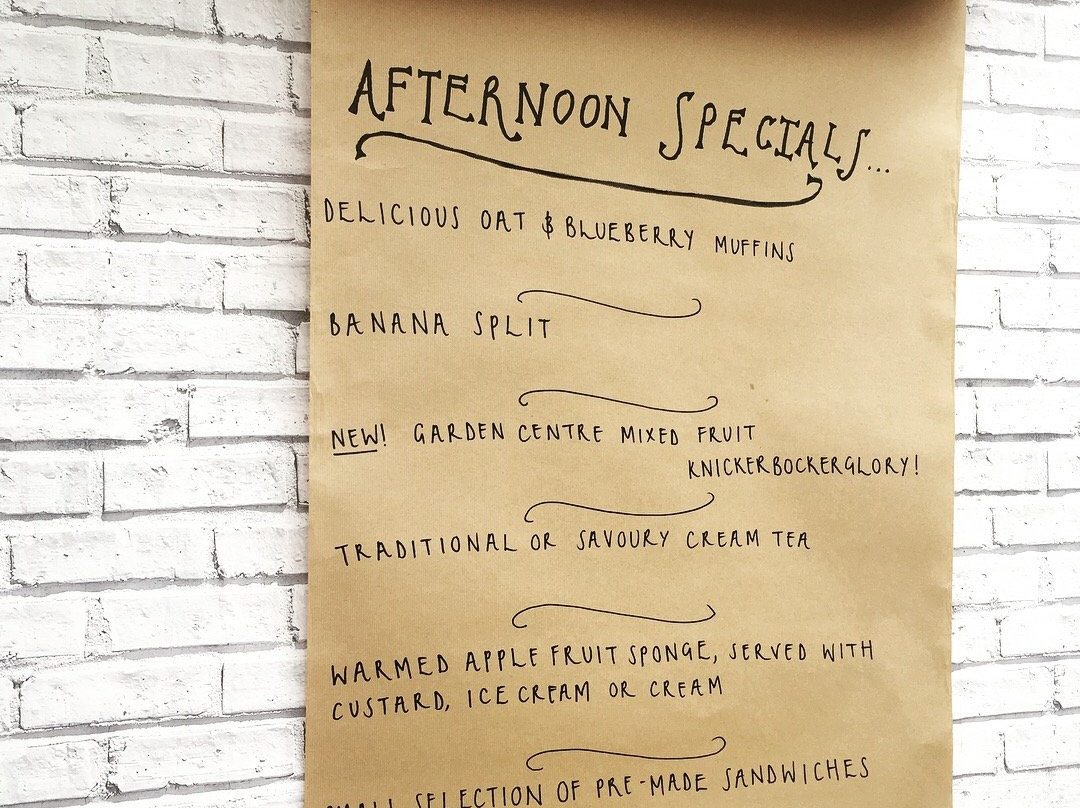 AFTERNOON SPECIALS...
DELICIOUS OAT & BLUEBERRY MUFFINS
BANANA SPLIT
NEW! GARDEN CENTRE MIXED FRUIT
KNICKERBOCKERGLORY!
TRADITIONAL OR SAVOURY CREAM TEA
WARMED APPLE FRUIT SPONGE, SERVED WITH
CUSTARD, ICE CREAM OR CREAM
SMALL SELECTION OF PRE-MADE SANDWICHES